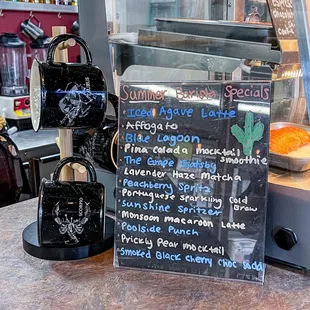 Summer Barista Specials
Iced Agave Latte
Affogato
Blue Lagoon
Pina Colada mocktail
smoothie
The Grape Gatsby
Lavender Haze Matcha
Peachberry Spritz
Portuguese Sparkling Cold
Brew
Sunshine Spritzer
Monsoon macaroon Latte
Poolside Punch
Prickly Pear mocktail
Smoked Black cherry choc soda